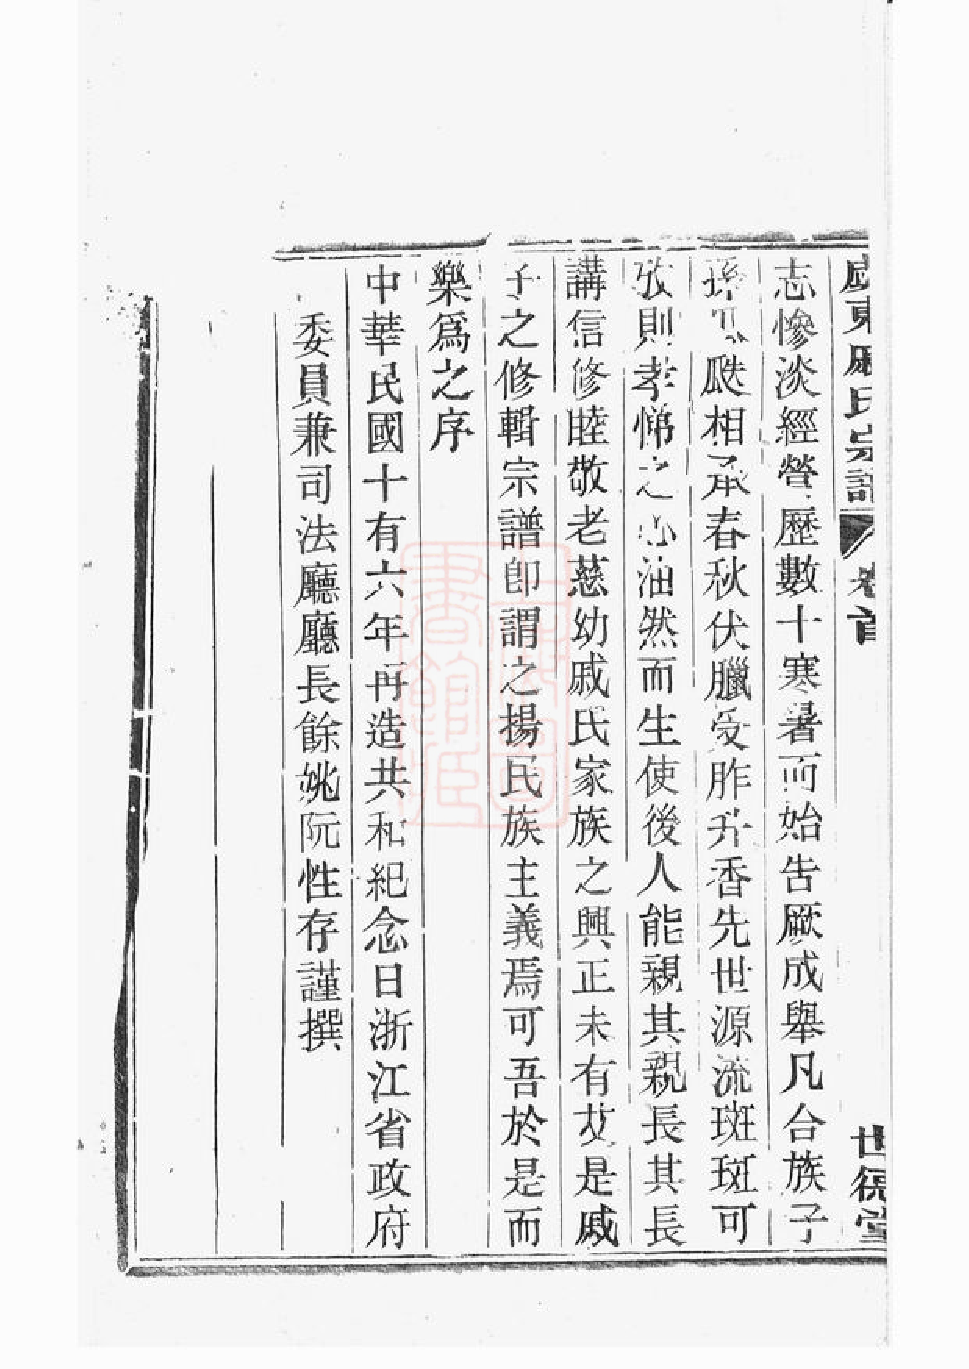 虞東戚氏宗譜 卷首 世德堂
志慘淡經營歷數十寒暑而始告厥成舉凡合族子
孫瓜瓞相承春秋伏臘受胙升香先世源流斑斑可
攷則孝悌之心油然而生使後人能親其親長其長
講信修睦敬老慈幼戚氏家族之興正未有艾是戚
子之修輯宗譜卽謂之揚民族主義焉可吾於是而
樂爲之序
中華民國十有六年再造共和紀念日浙江省政府
委員兼司法廳廳長餘姚阮性存謹撰